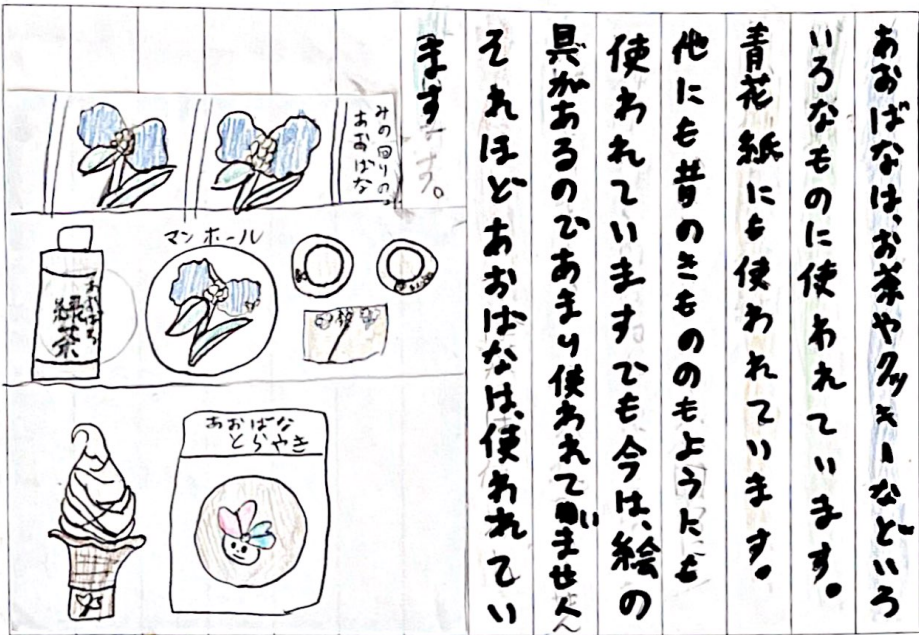 あおばなはお茶やクッキーなどいろ
いろなものに使われています。
青花紙にも使われています。
他にも昔のきもののもようにも
使われていますでも今は、絵の
具があるのであまり使われていません
それほどあおばなは、使われてい
ます
す。
みの回りの
あおばな
マンホール
緑茶
あおばな
どらやき